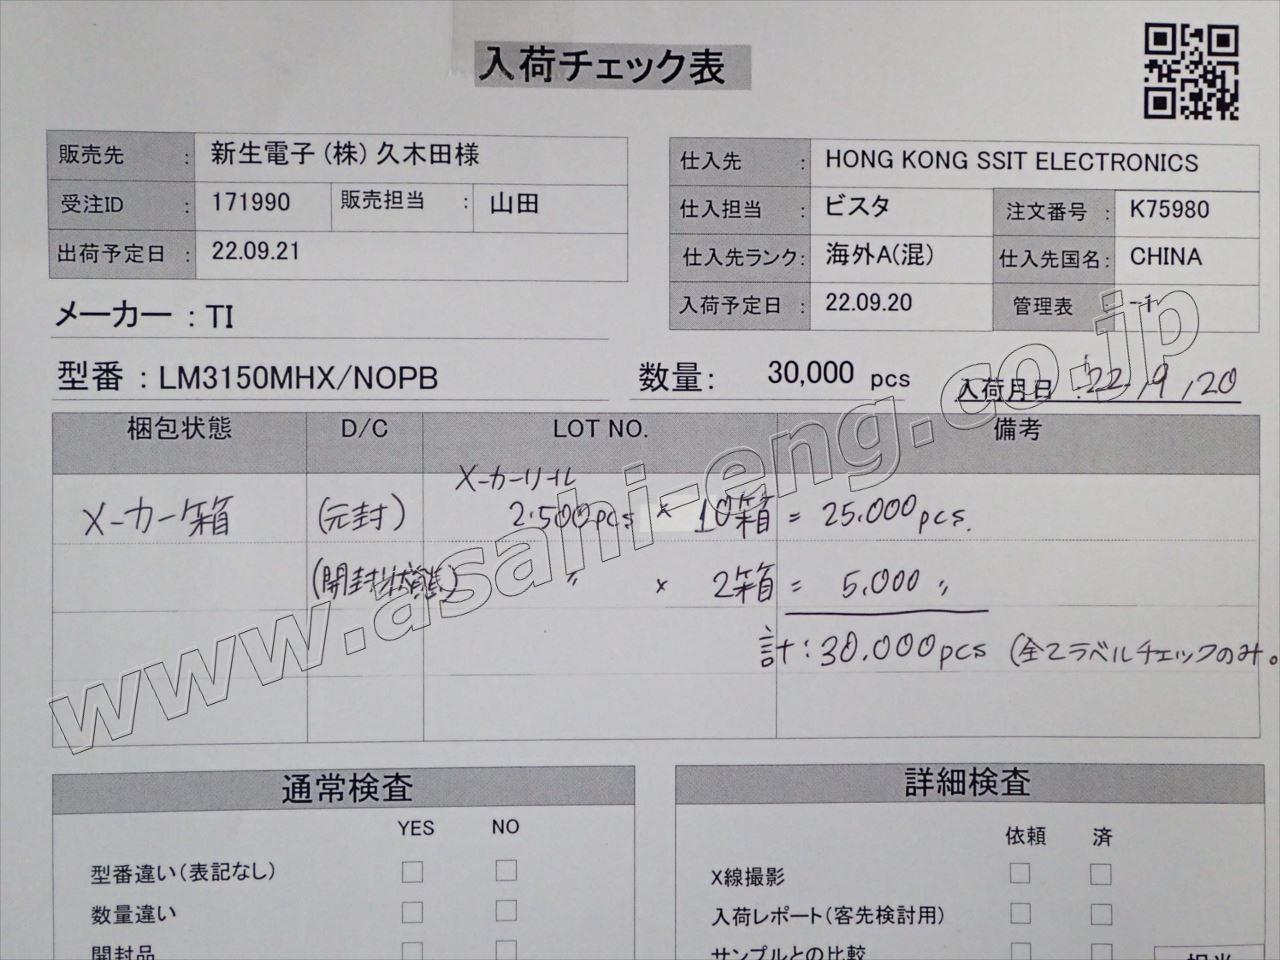 入荷チェック表
販売先 : 新生電子(株) 久木田様
受注ID : 171990 販売担当 : 山田
出荷予定日 : 22.09.21
仕入先 : HONG KONG SSIT ELECTRONICS
仕入担当 : ビスタ 注文番号 : K75980
仕入先ランク: 海外A(混) 仕入先国名: CHINA
入荷予定日 : 22.09.20 管理表 :
メーカー : TI
型番 : LM3150MHX/NOPB 数量: 30,000 pcs 入荷月日 : 22/9/20
梱包状態 D/C LOT NO. 備考
メーカーリール
メーカー箱 (元封) 2.500pcs × 10箱 = 25.000pcs.
(開封状態) 〃 × 2箱 = 5.000 〃
計:30.000pcs (全てラベルチェックのみ。
www.asahi-eng.co.jp
通常検査
YES NO
型番違い(表記なし)
数量違い
開封品
詳細検査
依頼 済
X線撮影
入荷レポート(客先検討用)
サンプルとの比較
担当